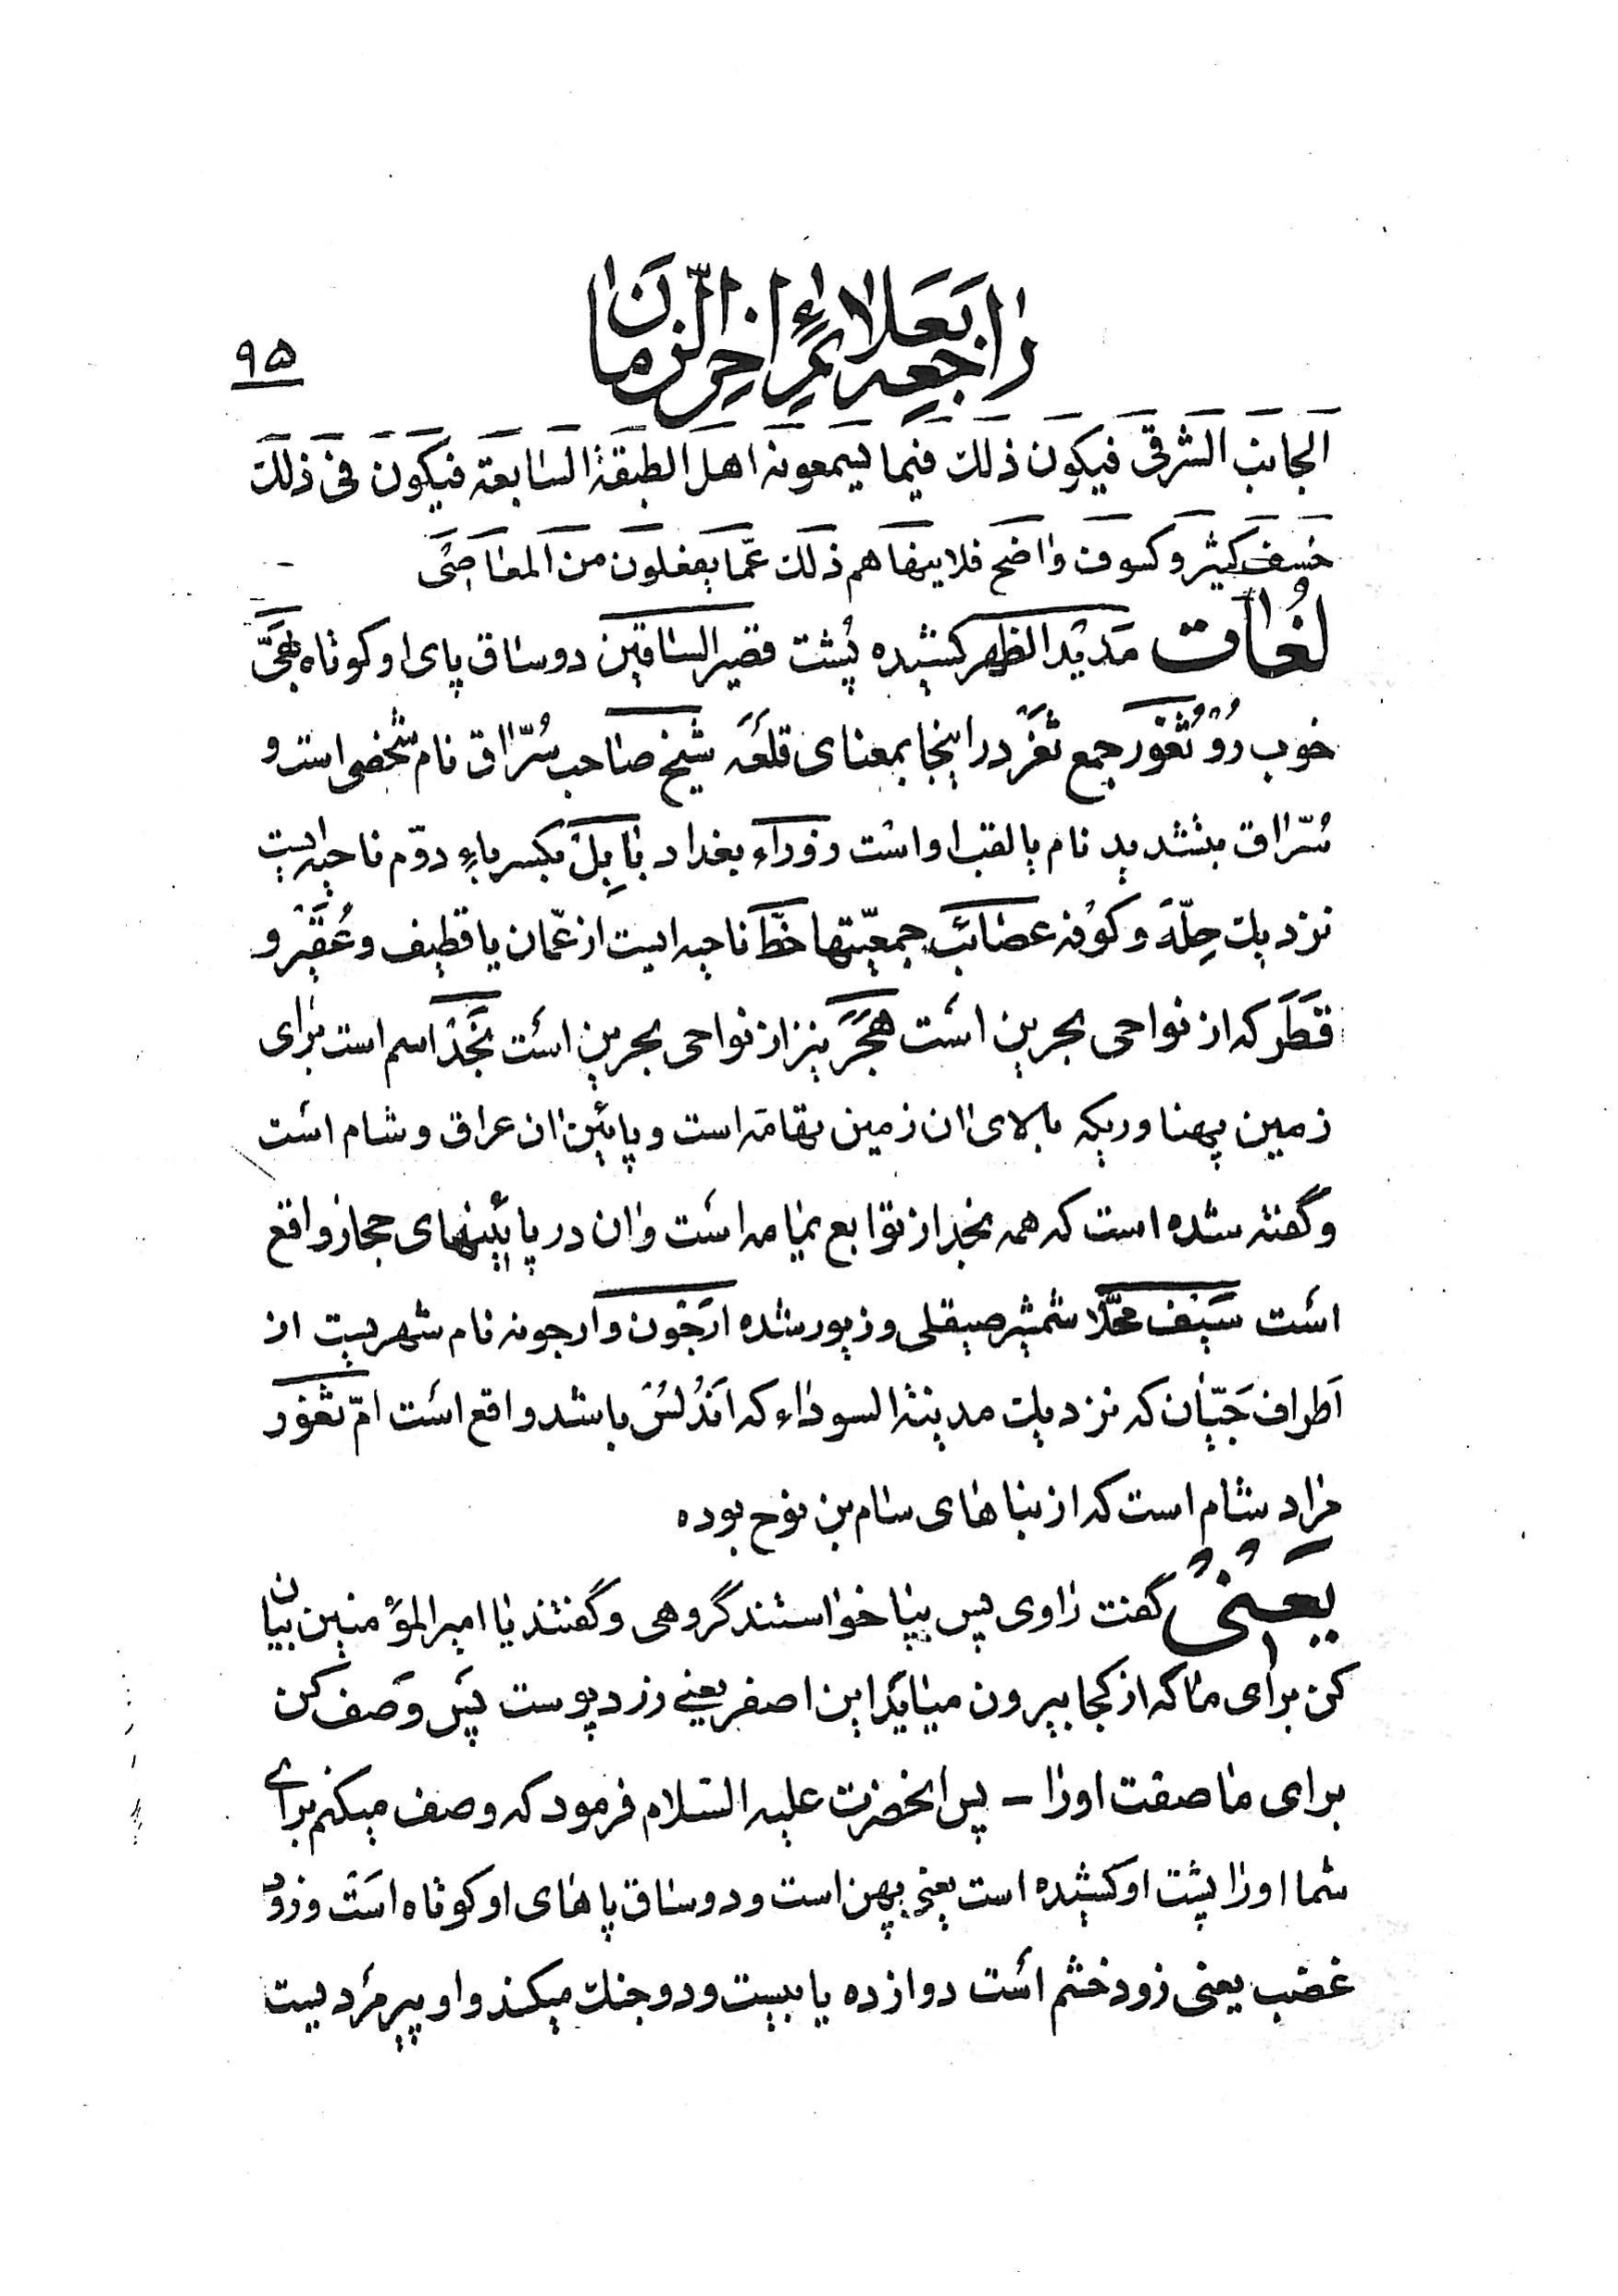 راجعه بعلائم اخر الزمان
۹۵
الجانب الشرقی فیکون ذلك فیما یسمعونه اهل الطبقة السابعة فیکون فی ذلك
خسف کثیر و کسوف واضح فلا ینهاهم ذلك عمّا یفعلون من المعاصی
لُغات مَدید الظهر کشیده پُشت قصیر الساقین دو ساق پای او کوتاه بَهیّ
خوب رُو ثُغُور جمع ثَغَر در اینجا بمعنای قلعَه شیخ صاحب سُرّاق نام شخصی است و
سُرّاق بتشدید نام یا لقب او است زوراء بغداد بابِل بکسر باء دوّم ناحیه ایست
نزدیك حِلّه و کوُفه عصائب جمعیّتها خَطّ ناحیه ایست از عمّان یا قطیف و عُقَیْر و
قَطَر که از نواحی بحرین است هَجَر نیز از نواحی بحرین است نَجْد اسم است برای
زمین پهناوریکه بالای ان زمین تهامَه است و پائین ان عراق و شام است
و گفته شده است که همه نجد از توابع یمامه است و ان در پائینهای حجاز واقع
است سَیف مُحلّا شمشیر صیقلی و زیور شده ارَجُون و ارجونه نام شهریست از
اَطراف جَیّان که نزدیك مدینة السوداء که اَندُلُس باشد واقع است امّ ثغور
مراد شام است که از بناهای سام بن نوح بوده
یَعنی گفت راوی پس بپا خواستند گروهی و گفتند یا امیر المؤمنین بیان
کن برای ما که از کجا بیرون میاید این اصفر یعنی زرد پوست پس وَصف کن
برای ما صفت او را – پس انحضرت علیه السّلام فرمود که وصف میکنم برای
شما او را پشت او کشیده است یعنی پهن است و دو ساق پاهای او کوتاه است و زود
غضب یعنی زود خشم است دوازده یا بیست و دو جنك میکند و او پیر مردیست